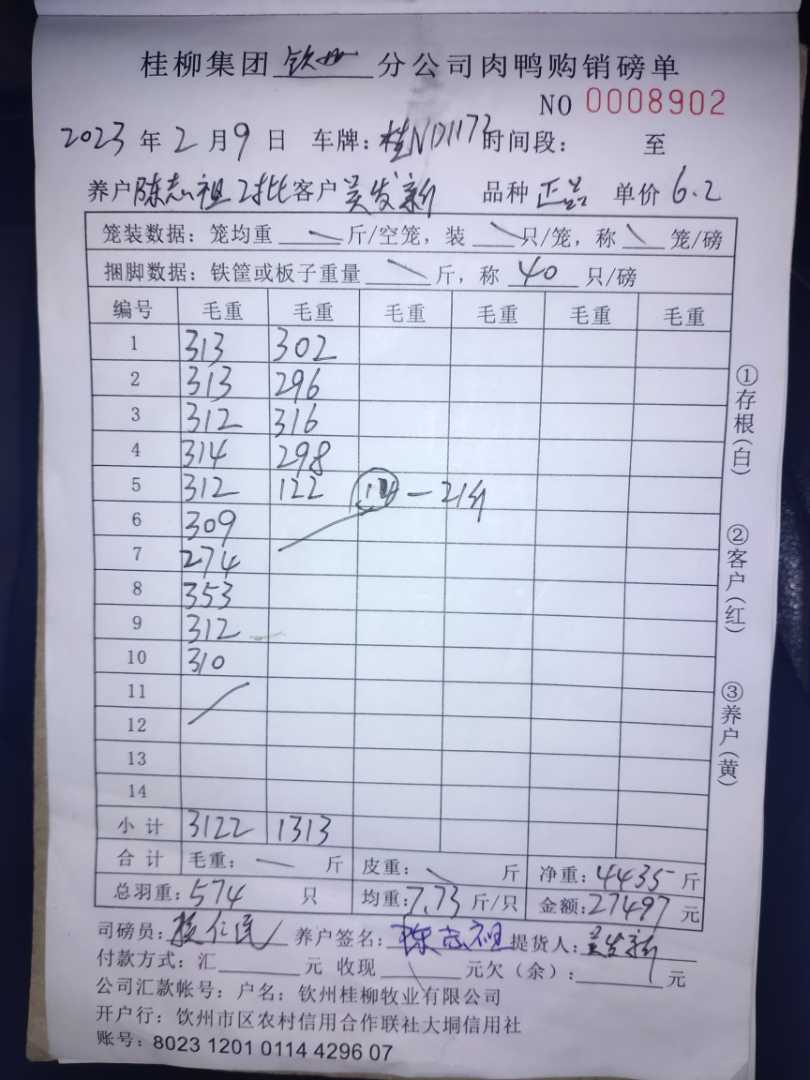 桂柳集团钦州分公司肉鸭购销磅单
NO 0008902
2023年2月9日 车牌:桂ND1173时间段: 至
养户陈志祖2批客户吴发新 品种正品 单价6.2
笼装数据:笼均重 斤/空笼,装 只/笼,称 笼/磅
捆脚数据:铁筐或板子重量 斤,称 40 只/磅
编号 毛重 毛重 毛重 毛重 毛重 毛重
1 313 302
2 313 296
3 312 316
4 314 298
5 312 122 — 21斤
6 309
7 274
8 353
9 312
10 310
11
12
13
14
小计 3122 1313
合计 毛重: 斤 皮重: 斤 净重:4435斤
总羽重:574 只 均重:7.73斤/只 金额:27497元
司磅员: 仁民 养户签名:陈志祖 提货人:吴发新
付款方式:汇 元 收现 元欠(余): 元
公司汇款帐号:户名:钦州桂柳牧业有限公司
开户行:钦州市区农村信用合作联社大垌信用社
账号:8023 1201 0114 4296 07
①存根(白)
②客户(红)
③养户(黄)